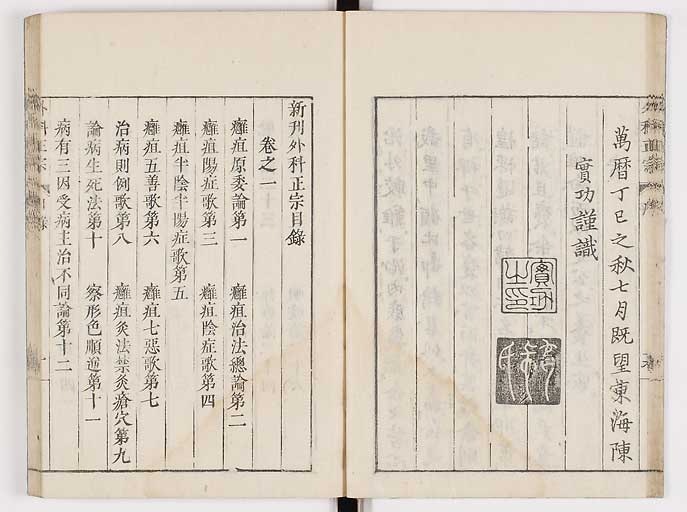 萬曆丁巳之秋七月既望東海陳
實功謹識
實功之印
外科正宗 序
新刊外科正宗目錄
卷之一
癰疽原委論第一 癰疽治法總論第二
癰疽陽症歌第三 癰疽陰症歌第四
癰疽半陰半陽症歌第五
癰疽五善歌第六 癰疽七惡歌第七
治病則例歌第八 癰疽灸法禁灸瘡穴第九
論病生死法第十 察形色順逆第十一
病有三因受病主治不同論第十二
外科正宗 目錄 一